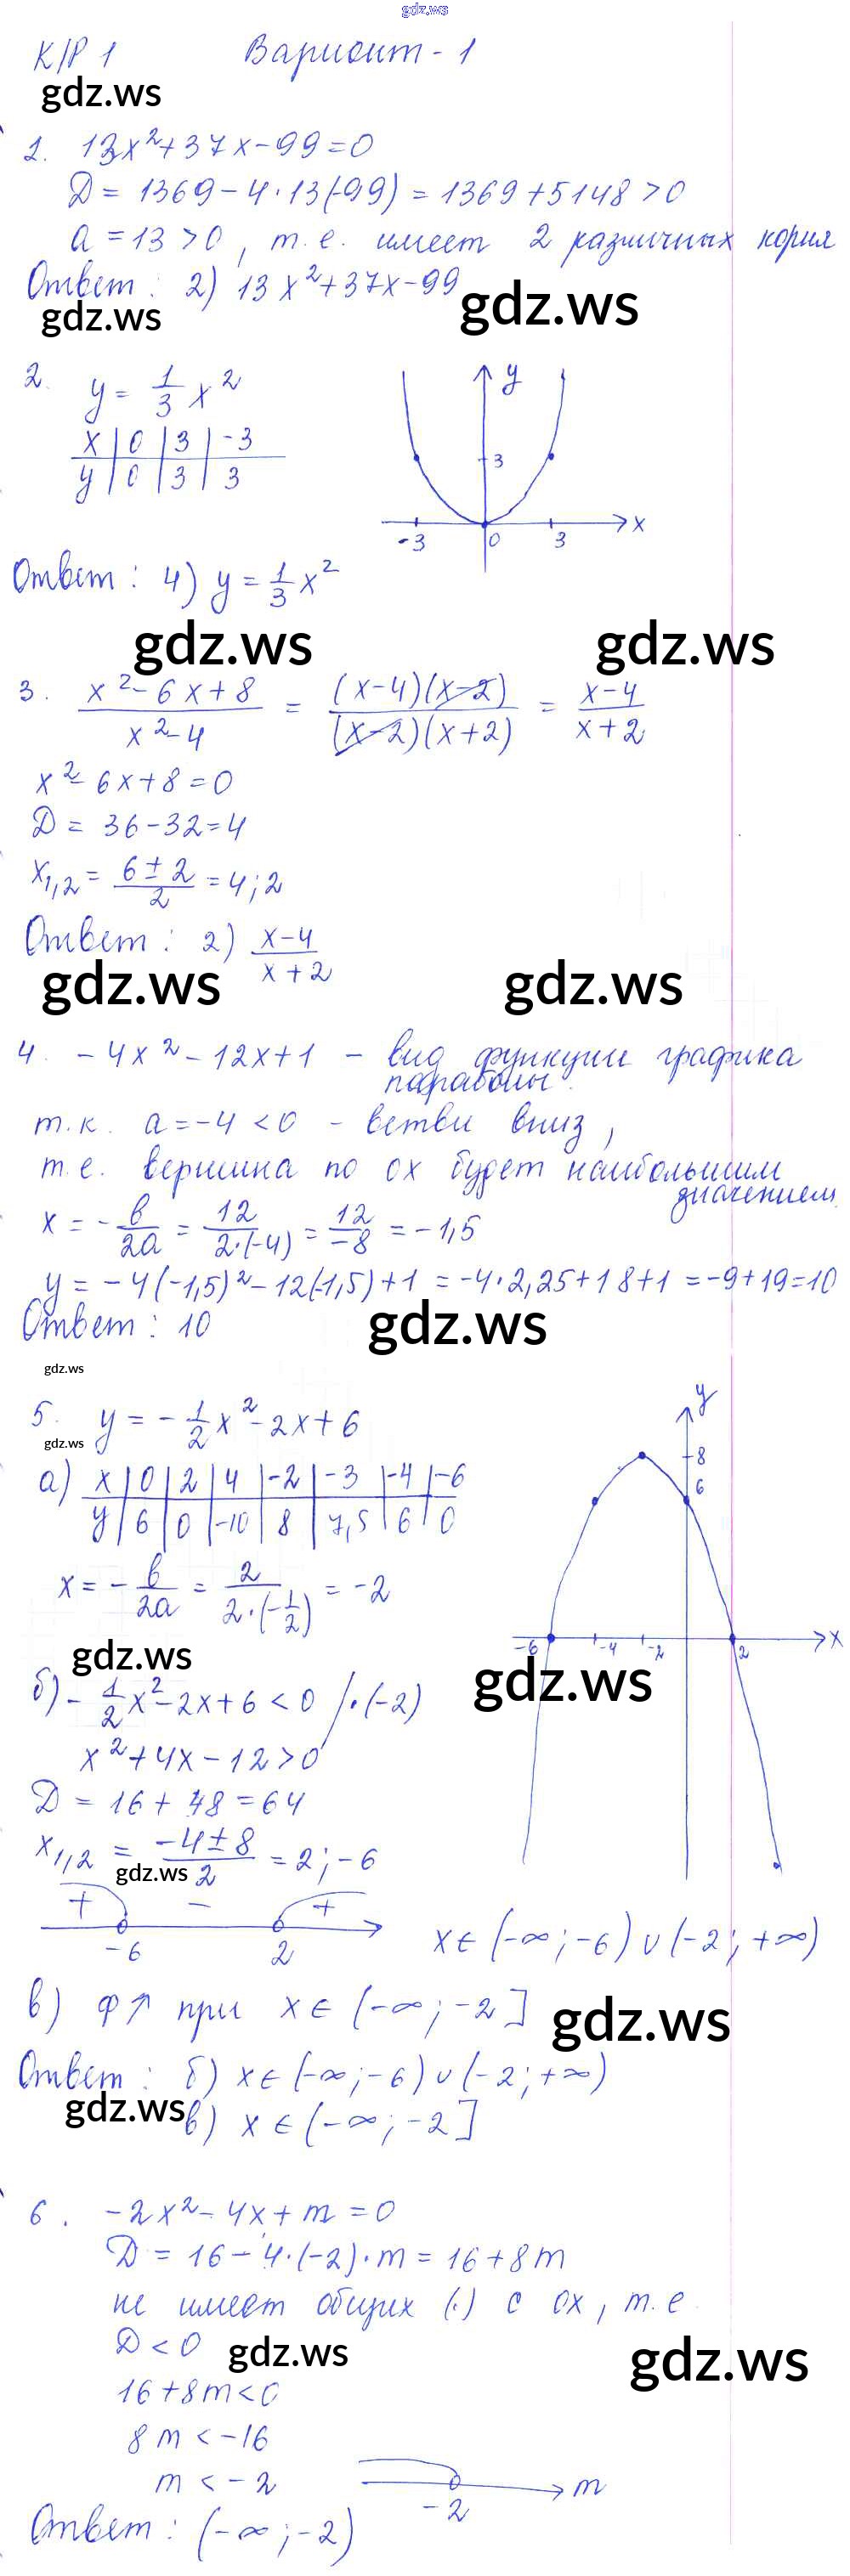 gdz.ws
К/Р 1 Вариант - 1
gdz.ws
1. 13x²+37x-99=0
Д = 1369-4·13(-99) = 1369+5148>0
a = 13 > 0, т.е. имеет 2 различных корня
Ответ: 2) 13x²+37x-99
gdz.ws gdz.ws
2. y = 1/3 x²
x | 0 | 3 | -3
y | 0 | 3 | 3
y
3
-3 0 3 x
Ответ: 4) y = 1/3 x²
gdz.ws gdz.ws
3. (x²-6x+8)/(x²-4) = ((x-4)(x-2))/((x-2)(x+2)) = (x-4)/(x+2)
x²-6x+8=0
Д = 36-32=4
x₁,₂ = (6±2)/2 = 4;2
Ответ: 2) (x-4)/(x+2)
gdz.ws gdz.ws
4. -4x²-12x+1 - вид функции графика
параболы.
т.к. a=-4<0 - ветви вниз,
т.е. вершина по ox будет наибольшим
значением.
x = -в/2a = 12/(2·(-4)) = 12/-8 = -1,5
y = -4(-1,5)²-12(-1,5)+1 = -4·2,25+18+1 = -9+19=10
Ответ: 10
gdz.ws
gdz.ws
5. y = -1/2 x²-2x+6
gdz.ws
а) x | 0 | 2 | 4 | -2 | -3 | -4 | -6
y | 6 | 0 | -10 | 8 | 7,5 | 6 | 0
x = -в/2a = 2/(2·(-1/2)) = -2
y
8
6
-6 -4 -2 2 x
gdz.ws gdz.ws
б) -1/2 x²-2x+6 < 0 /·(-2)
x²+4x-12>0
Д = 16+48=64
x₁,₂ = (-4±8)/2 = 2;-6
gdz.ws
+ - +
-6 2
x∈(-∞;-6)∪(-2;+∞)
в) ф↑ при x∈(-∞;-2]
gdz.ws
Ответ: б) x∈(-∞;-6)∪(-2;+∞)
gdz.ws
в) x∈(-∞;-2]
6. -2x²-4x+m=0
Д = 16-4·(-2)·m = 16+8m
не имеет общих (·) с ox, т.е.
Д<0
gdz.ws gdz.ws
16+8m<0
8m<-16
m<-2
-2 m
Ответ: (-∞;-2)